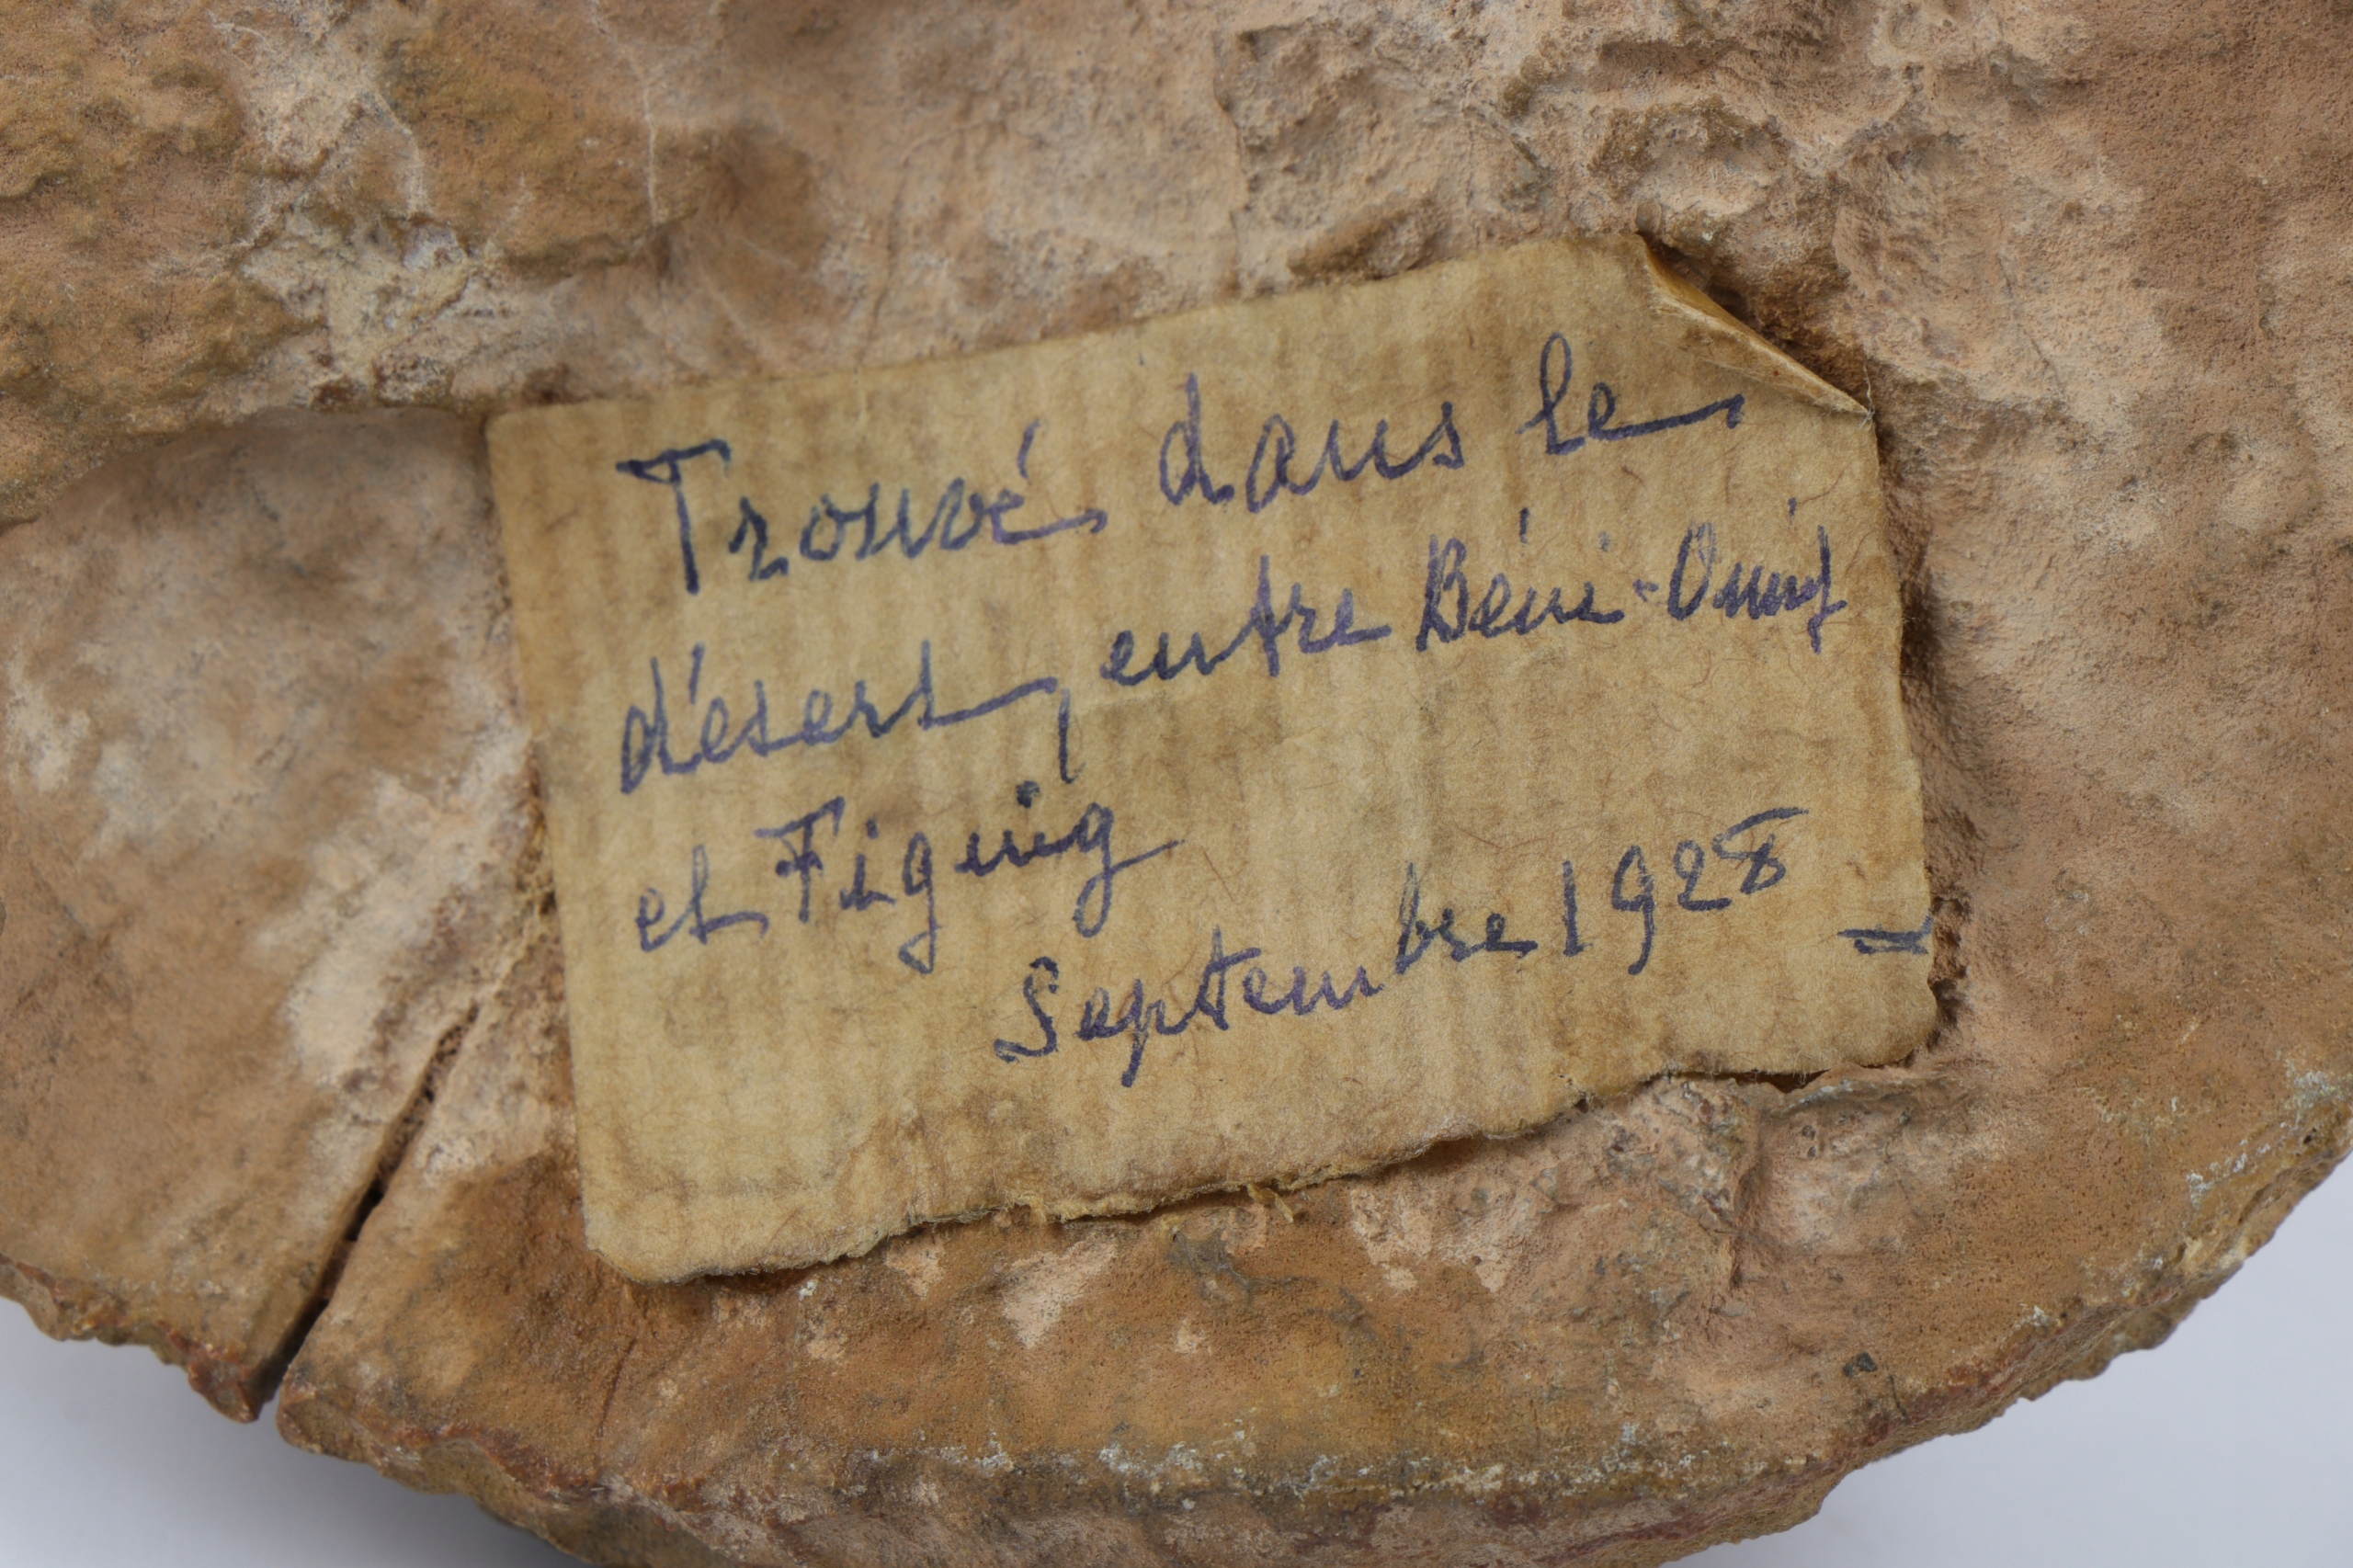 Trouvé dans le
désert, entre Béni-Ounif
et Figuig
Septembre 1928 -